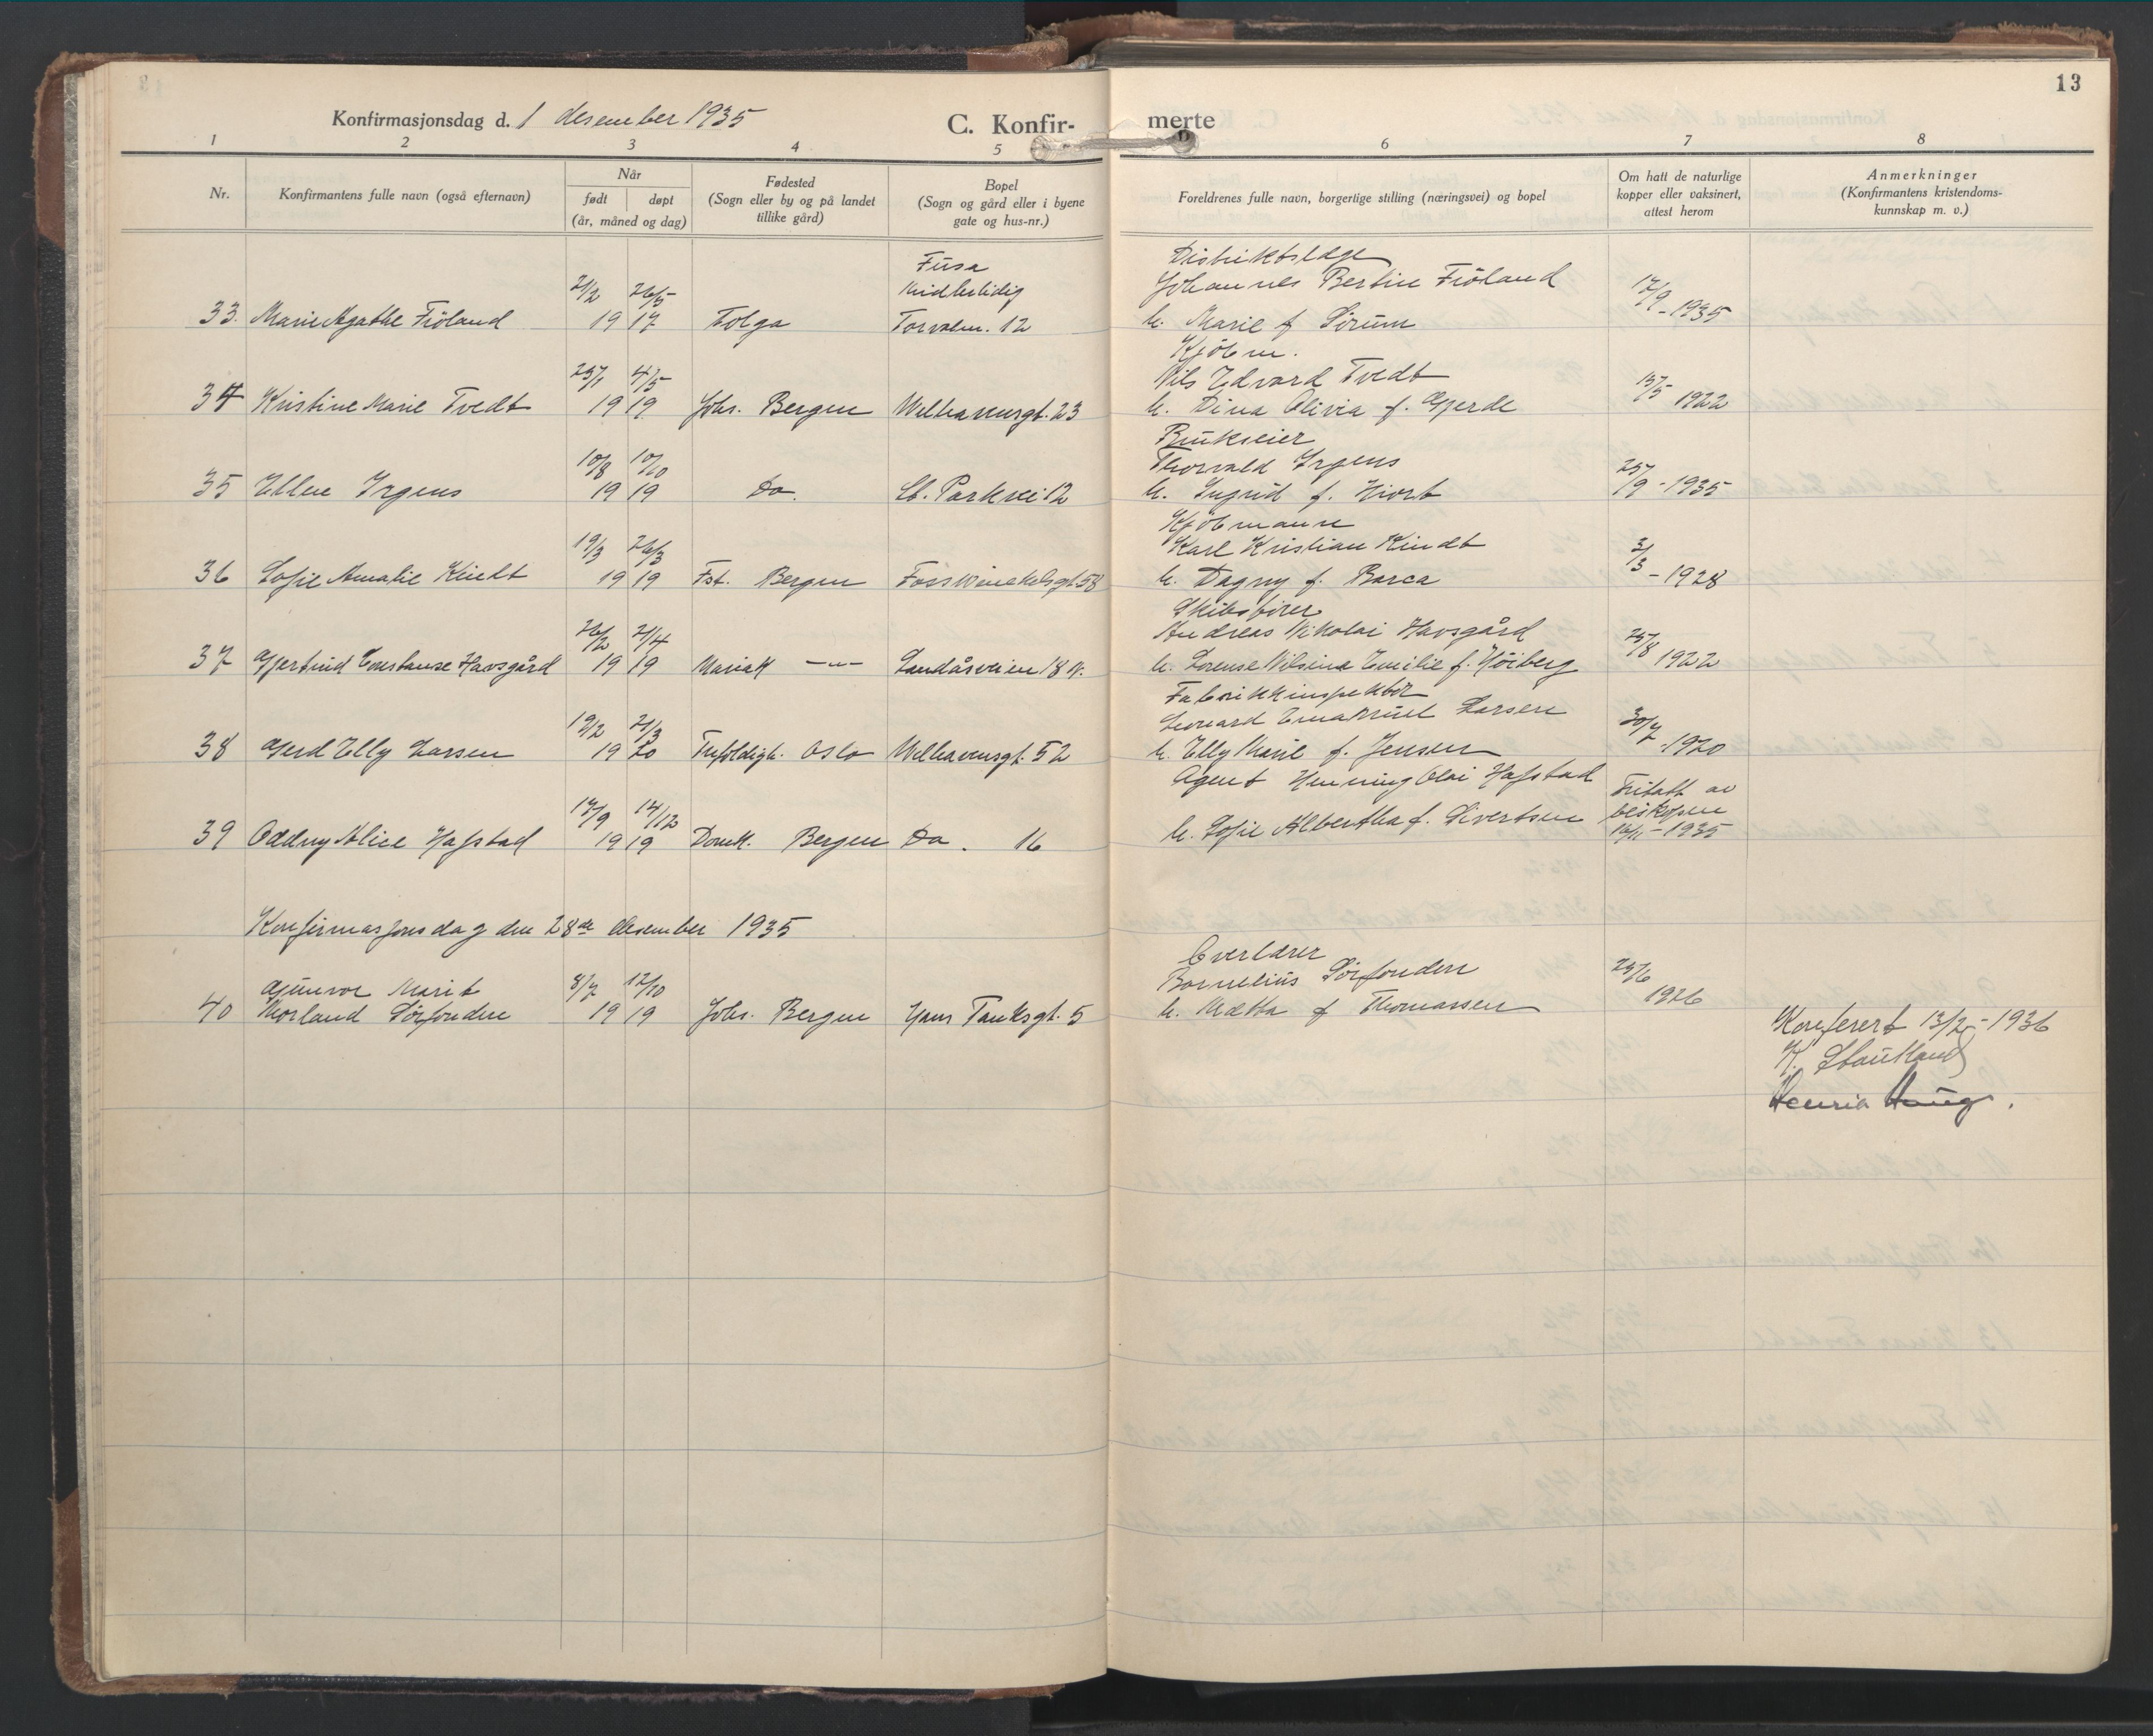 13
Konfirmasjonsdag d. 1 desember 1935
C. Konfir- merte
1 2 3 4 5 6 7 8
Nr.
Konfirmantens fulle navn (også efternavn)
Når
født døpt
(år, måned og dag)
Fødested
(Sogn eller by og på landet
tillike gård)
Bopel
(Sogn og gård eller i byene
gate og hus-nr.)
Foreldrenes fulle navn, borgerlige stilling (næringsvei) og bopel
Om hatt de naturlige
kopper eller vaksinert,
attest herom
Anmerkninger
(Konfirmantens kristendoms-
kunnskap m. v.)
Fusa
midlertidig
33. Marie Agathe Fröland 21/2 26/5 1917 Tolga Torvalm. 12
Distriktslæge
Johannes Bertin Fröland
h. Marie f Sörum
17/9-1935
34 Kristine Marie Tvedt 25/1 4/5 1919 Johs. Bergen Welhavensgt. 23
Kjöbm.
Nils Edvard Tvedt
h. Dina Olivia f. Gjerde
15/5 1922
35 Ellen Irgens 10/8 10/10 1919 Do. St. Parkvei 12
Brukseier
Thorvald Irgens
h. Ingrid f. Hiort
25/9-1935
36 Sofie Amalie Kindt 19/3 26/3 1919 Fst. Bergen Fosswinckelsgt. 58
Kjöbmann
Karl Kristian Kindt
h. Dagny f. Barca
3/3-1928
37 Gjertrud Constanse Havsgård 26/2 21/4 1919 Mariak —"— Landåsveien 18 A.
Skibsförer
Andreas Nikolai Havsgård
h. Lorense Nilsine Emilie f. Höiberg
25/8 1922
38 Gerd Elly Larsen 19/2 21/3 1920 Trefoldigh. Oslo Welhavensgt. 52
Fabrikkinspektör
Leonard Emanuel Larsen
h. Elly Marie f. Jensen
30/7 1920
39 Oddny Alice Hafstad 17/9 14/12 1919 Domk. Bergen Do. 16
Agent Henning Olai Hafstad
h. Sofie Albertha f. Sivertsen
Fritatt av
biskopen
16/11-1935
Konfirmasjonsdag den 28de desember 1935
Gunvor Marit
40 Morland Sörfonden 8/7 12/10 1919 Johs. Bergen Hans Tanksgt. 5
Overlærer
Kornelius Sörfonden
h. Metha f Thomassen
25/6
1926
Konferert 13/2-1936
K. Stautland
Henrik Haugs.